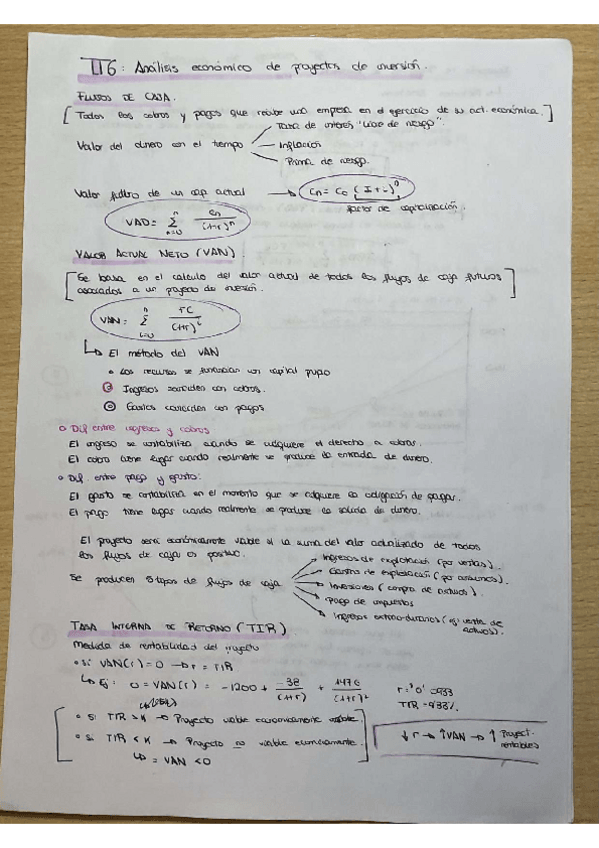 IT6: Análisis económico de proyectos de inversión.
FLUJOS DE CAJA.
[Todos los cobros y pagos que recibe una empresa en el ejercicio de su act. económica.]
Tasa de interés "libre de riesgo".
Valor del dinero con el tiempo Inflación
Prima de riesgo.
Valor futuro de un cap actual → Cn = Co (I+i)^n
factor de capitalización.
VAD = Σ Cn/(1+r)^n
VALOR ACTUAL NETO (VAN).
[Se basa en el calculo del valor actual de todos los flujos de caja futuros
asociados a un proyecto de inversión.]
VAN = Σ FC/(1+r)^i
↳ El método del VAN
• Los recursos se financian un capital
Ingresos coinciden con cobros.
Gastos coinciden con pagos
o Dif entre ingresos y cobros
El ingreso se contabiliza cuando se adquiere el derecho a cobrar.
El cobro tiene lugar cuando realmente se produce la entrada de dinero.
o Dif. entre pago y gasto:
El gasto se contabiliza en el momento que se adquiere la obligación de pagar.
El pago tiene lugar cuando realmente se produce la salida de dinero.
El proyecto será económicamente viable si la suma del valor actualizado de todos
los flujos de caja es positivo.
Ingresos de explotación (por ventas).
Gastos de explotación (por consumos).
Se producen 5 tipos de flujos de caja Inversiones (compra de activos).
Pago de impuestos
Ingresos extraordinarios (ej: venta de
activos).
TASA INTERNA DE RETORNO (TIR).
Medida de rentabilidad del proyecto
• Si VAN(r) = 0 → r = TIR
↳ Ej: 0 = VAN(r) = -1200 + -38/(1+r) + 1476/(1+r)² r = 0'0933
TIR = 9'33%.
• Si TIR > K → Proyecto viable economicamente viable.
• Si TIR < K → Proyecto no viable economicamente.
↳ = VAN < 0
↓r → ↑VAN → ↑ Proyect.
rentables